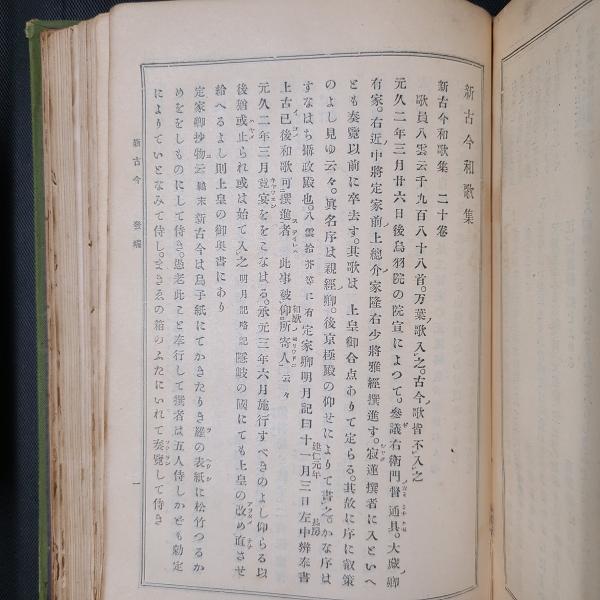 新古今和歌集
新古今和歌集　二十卷
歌員八雲云千九百八十八首。万葉歌入之。古今歌皆不入之
元久二年三月廿六日後鳥羽院の院宣によつて。參議右衛門督通具。大藏卿
有家。右近中將定家前上總介家隆右少將雅經撰進す。寂蓮撰者に入といへ
とも奏覽以前に卒去す。其歌は　上皇御合点ありて定らる。其故に序に叡策
のよし見ゆ云々。眞名序は親經卿。後京極殿の仰せによりて書之。かな序は
すなはち攝政殿也。八雲拾芥等に有定家卿明月記曰十一月三日左中辨奉書
上古已後和歌可撰進者　此事被仰所寄人云々
元久二年三月竟宴ををこなはる。承元三年六月施行すべきのよし仰らる以
後猶或止られ或は始て入之明月記略記隱岐の國にても上皇の改め直させ
給へるよし則上皇の御奥書にあり
定家卿抄物云新古今は鳥子紙にてかきたりき羅の表紙に松竹つるか
めををしものにして侍き。愚老此こと奉行して撰者は五人侍しかども勅定
によりていとなみて侍し。まきゑの箱のふたにいれて奏覽して侍き
新古今　發端
一